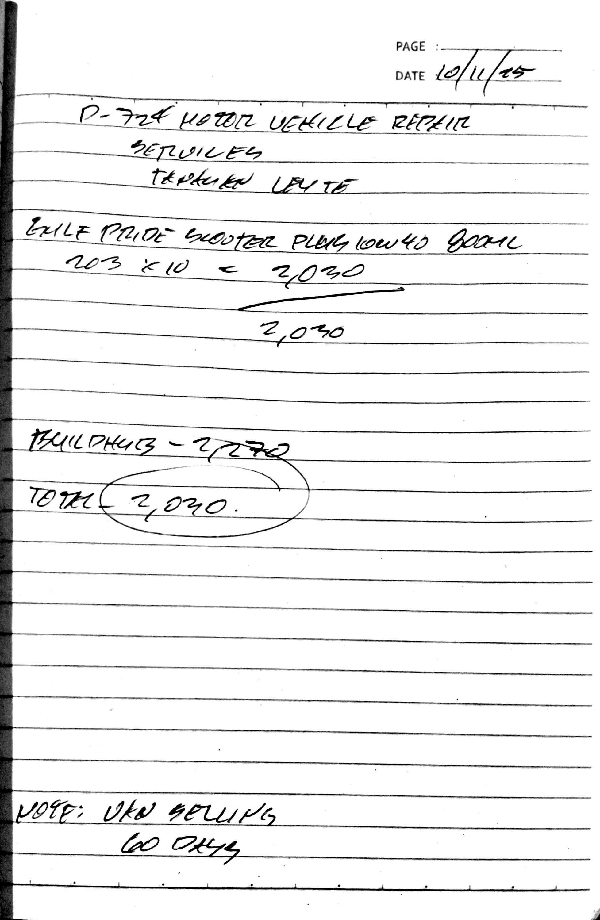 PAGE :
DATE 10/11/25
D-724 MOTOR VEHICLE REPAIR
SERVICES
TANAUAN LEYTE
PRIDE SCOOTER PLUS 10W40 800ML
203 x 10 = 2,030
2,030
BUILDHUB - 2,270
TOTAL - 2,030.
NOTE: VAN SELLING
60 DAYS